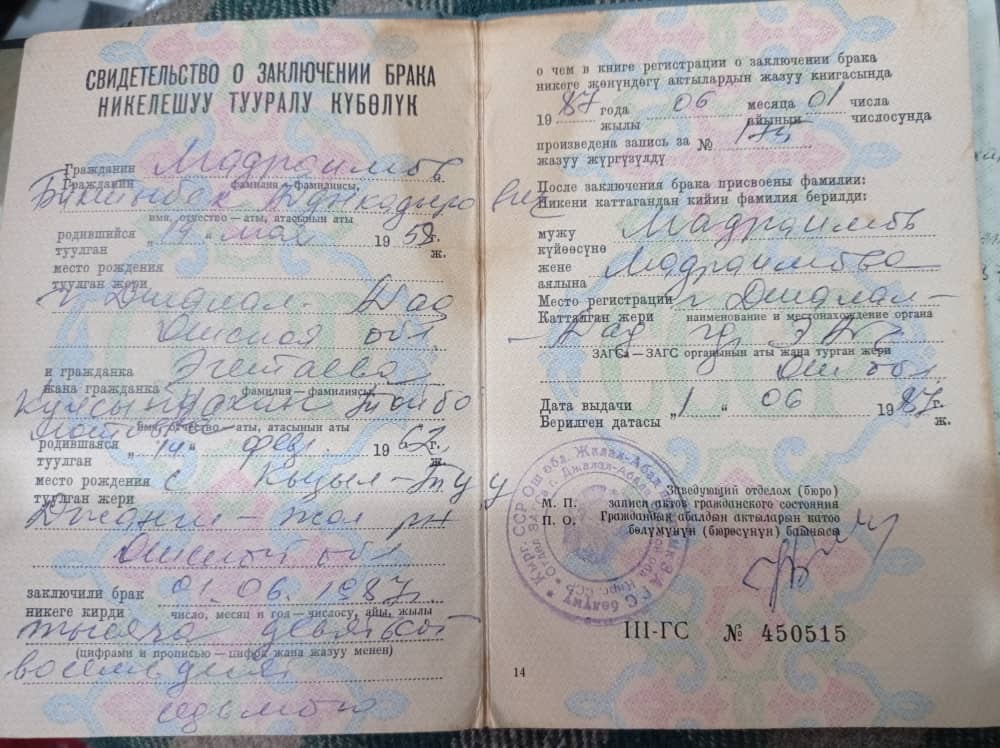 СВИДЕТЕЛЬСТВО О ЗАКЛЮЧЕНИИ БРАКА
НИКЕЛЕШУУ ТУУРАЛУ КҮБӨЛҮК
Гражданин Мадраимов
Гражданин фамилия — фамилиясы,
имя, отчество — аты, атасынын аты
родившийся „19“ мая 1958 г.
туулган ж.
место рождения
туулган жери
г. Джалал-Абад
Ошской обл.
и гражданка Эгетаева
жана гражданка фамилия — фамилиясы,
имя, отчество — аты, атасынын аты
родившаяся „14“ фев. 1962 г.
туулган ж.
место рождения с Кызыл-Туу
туулган жери
Джанги-Жол рн
Ошской обл
заключили брак 01.06.1987г.
никеге кирди число, месяц и год — числосу, айы, жылы
тысяча девятьсот
(цифрами и прописью — цифра жана жазуу менен)
восемьдесят
седьмого
о чем в книге регистрации о заключении брака
никеге жөнүндөгү актылардын жазуу книгасында
1987 года 06 месяца 01 числа
жылы айынын числосунда
произведена запись за №
жазуу жүргүзүлдү
После заключения брака присвоены фамилии:
Никени каттагандан кийин фамилия берилди:
мужу Мадраимов
күйөөсүнө
жене Мадраимова
аялына
Место регистрации г. Джалал-
Катталган жери наименование и местонахождение органа
Абад
ЗАГСа — ЗАГС органынын аты жана турган жери
Ош обл
Дата выдачи „1“ 06 1987 г.
Берилген датасы ж.
Заведующий отделом (бюро)
М. П. записи актов гражданского состояния
П. О. Граждандык абалдын актыларын каттоо
бөлүмүнүн (бюросунун) башчысы
III-ГС № 450515
14